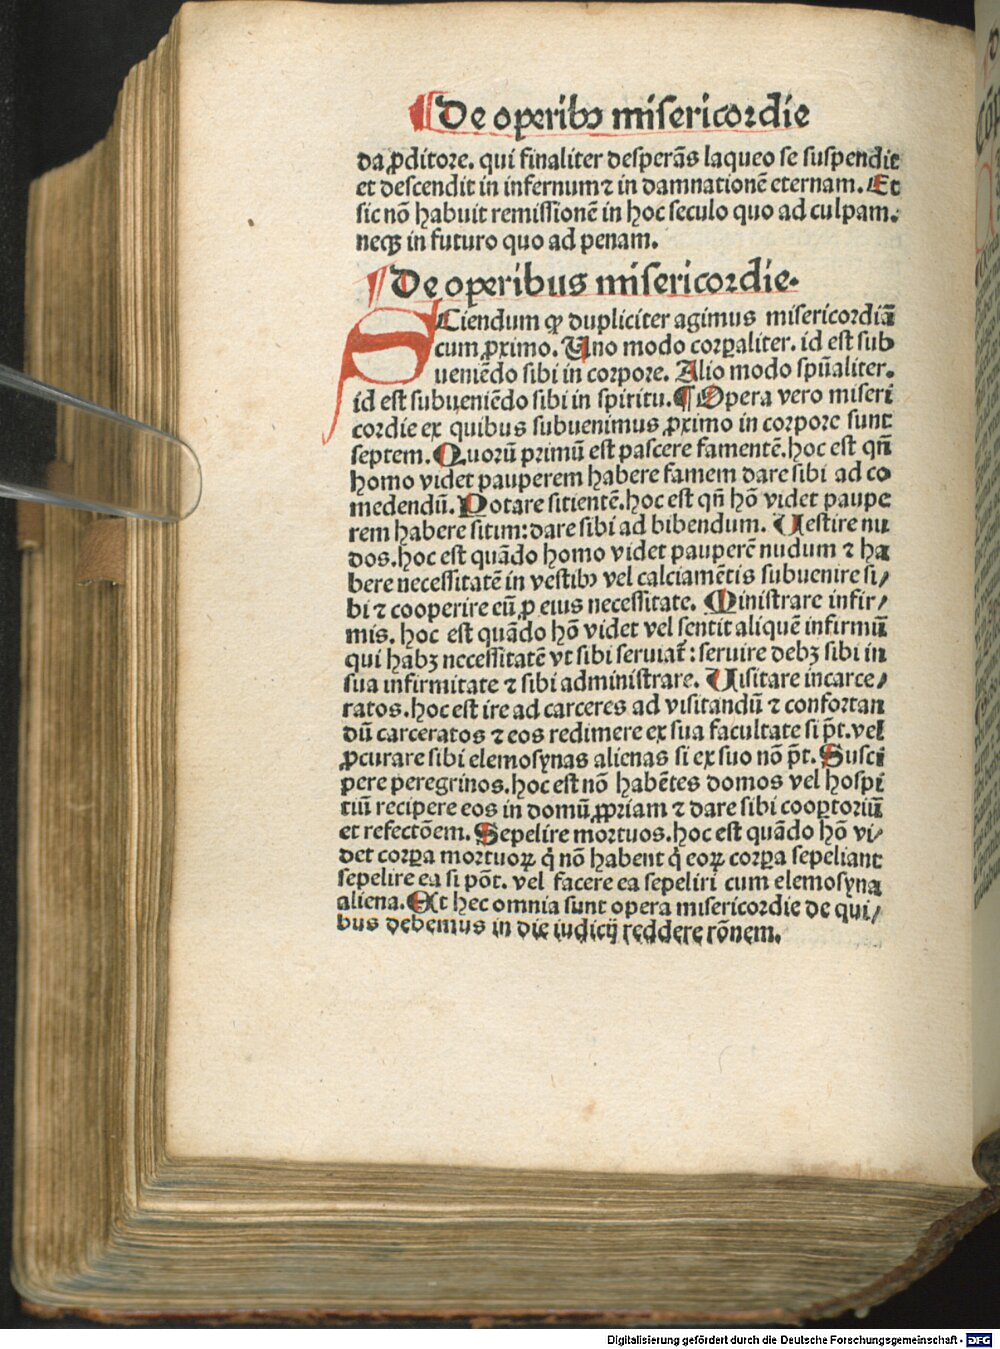 ¶De operibꝰ misericordie
da ꝓditore. qui finaliter desperãs laqueo se suspendit
et descendit in infernum ⁊ in damnationẽ eternam. Et
sic nõ habuit remissionẽ in hoc seculo quo ad culpam.
neqꝫ in futuro quo ad penam.
¶De operibus misericordie.
SCiendum ꝙ dupliciter agimus misericordiã
cum ꝓximo. Uno modo corꝑaliter. id est sub
ueniẽdo sibi in corpore. Alio modo spũaliter.
id est subueniẽdo sibi in spiritu. ¶ Opera vero miseri
cordie ex quibus subuenimus ꝓximo in corpore sunt
septem. Quorũ primũ est pascere famentẽ. hoc est qñ
homo videt pauperem habere famem dare sibi ad co
medendũ. Potare sitientẽ. hoc est qñ hõ videt paupe
rem habere sitim: dare sibi ad bibendum. Uestire nu
dos. hoc est quãdo homo videt pauperẽ nudum ⁊ ha
bere necessitatẽ in vestibꝰ vel calciamẽtis subuenire si/
bi ⁊ cooperire eũ ꝓ eius necessitate. Ministrare infir/
mis. hoc est quãdo hõ videt vel sentit aliquẽ infirmũ
qui habꝫ necessitatẽ vt sibi seruiat᷑: seruire debꝫ sibi in
sua infirmitate ⁊ sibi administrare. Uisitare incarce/
ratos. hoc est ire ad carceres ad visitandũ ⁊ confortan
dũ carceratos ⁊ eos redimere ex sua facultate si põt. vel
ꝓcurare sibi elemosynas alienas si ex suo nõ põt. Susci
pere peregrinos. hoc est nõ habẽtes domos vel hospi
tiũ recipere eos in domũ ꝓpriam ⁊ dare sibi cooꝑtoriũ
et refectõem. Sepelire mortuos. hoc est quãdo hõ vi/
det corꝑa mortuoꝝ q̇ nõ habent q̇ eoꝝ corꝑa sepeliant
sepelire ea si põt. vel facere ea sepeliri cum elemosyna
aliena. Et hec omnia sunt opera misericordie de qui/
bus debemus in die iudicij reddere rõnem.
Digitalisierung gefördert durch die Deutsche Forschungsgemeinschaft - DFG